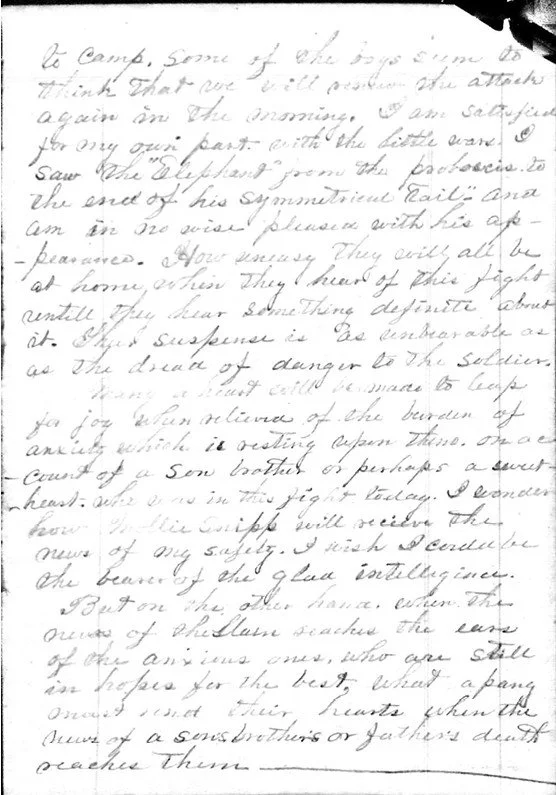 to camp. Some of the boys seem to
think that we will renew the attack
again in the morning. I am satisfied
for my own part with the little wars. I
saw the "Elephant" from the proboscis to
the end of his symmetrical tail" and
am in no wise pleased with his ap-
-pearance. How uneasy they will all be
at home when they hear of this fight
untill they hear something definite about
it. That suspense is as unbearable as
as the dread of danger to the soldier.
Many a heart will be made to leap
for joy when relieved of the burden of
anxiety which is resting upon them. on ac
-count of a son brother or perhaps a sweet-
-heart. who was in this fight today. I wonder
how Mollie Snipp will recieve the
news of my safety. I wish I could be
the bearer of the glad intelligince.
But on the other hand. when the
news of the slain reaches the ears
of the anxious ones. who are still
in hopes for the best, what a pang
must rend their hearts when the
news of a sons brothers or father's death
reaches them